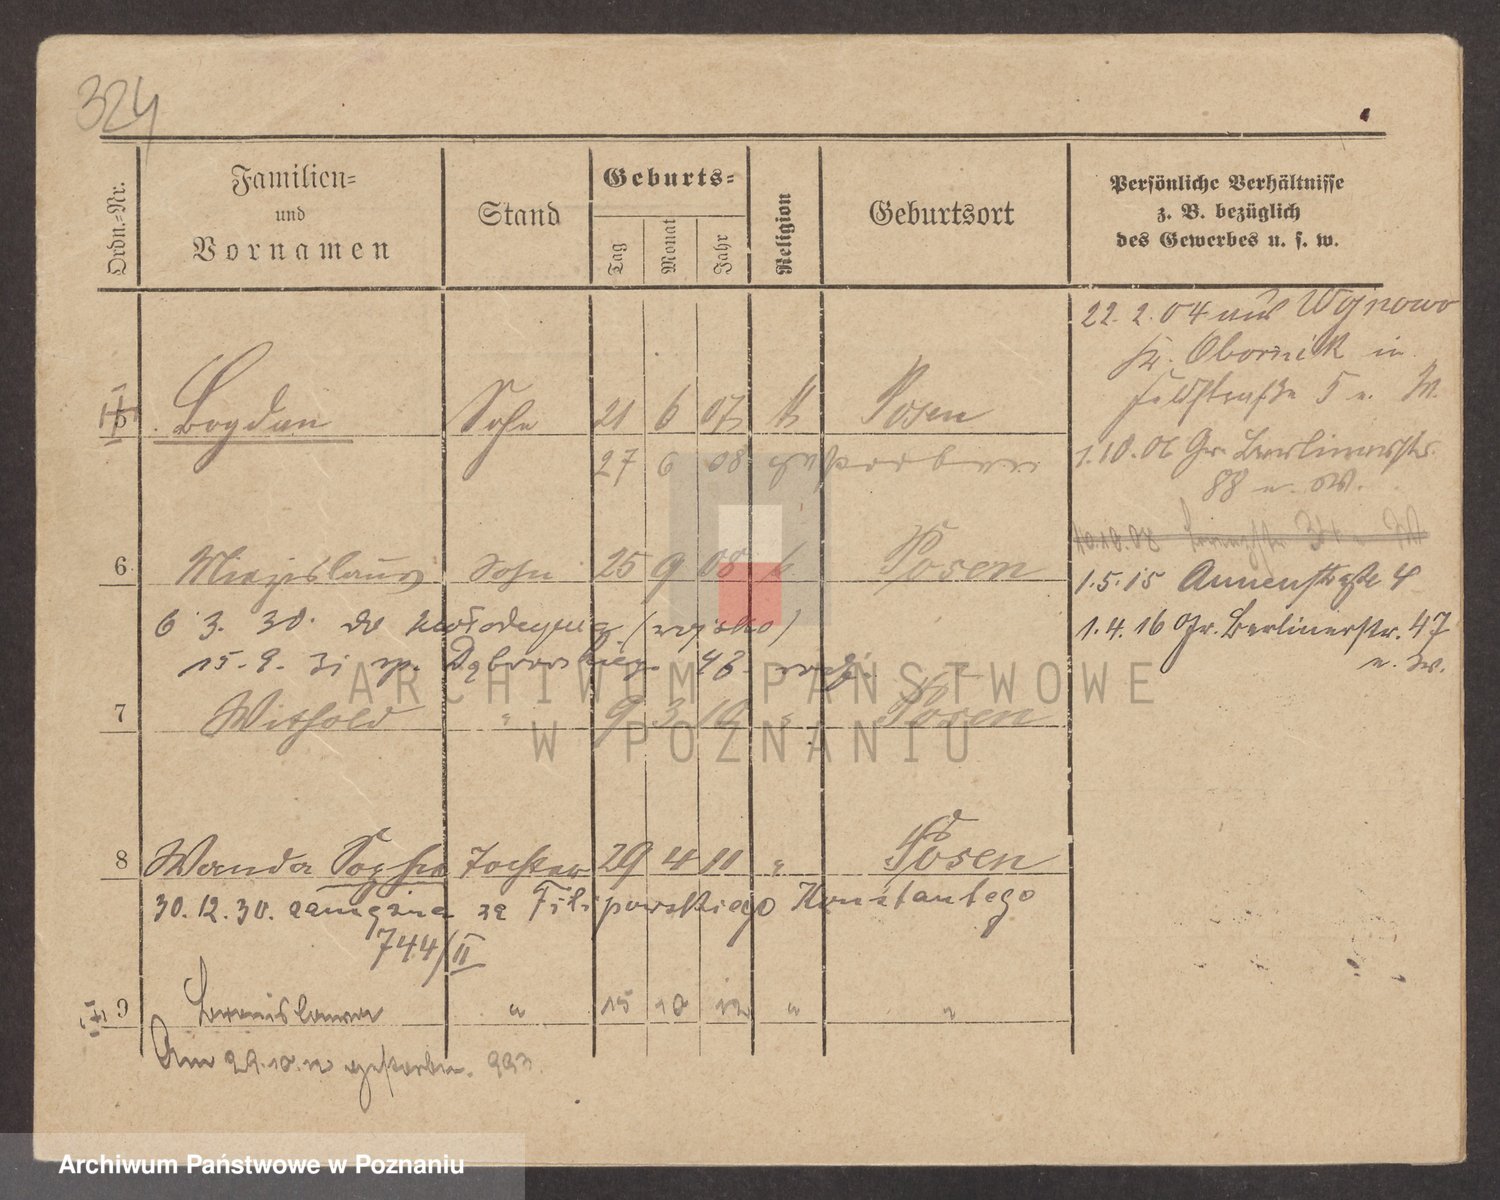 324
Ordn.-Nr.
Familien-
und
Vornamen
Stand
Geburts-
Tag
Monat
Jahr
Religion
Geburtsort
Persönliche Verhältnisse
z. B. bezüglich
des Gewerbes u. s. w.
22. 2. 04 aus Wojnowo
Kr. Obornik in
Feldstraße 5 n. W.
5 Bogdan Sohn 21 6 07 k Posen
27 6 08 gestorben
1.10.06 Gr. Berlinerstr.
88 n. W.
10.10.08
6 Miezislaus Sohn 25 9 08 k Posen
1.5.15 Annenstraße 4
6 3. 30. do (wojsko)
1.4.16 Gr. Berlinerstr. 47
n. W.
15. 9. 31 Dąbrowskiego 48
7 Withold " 9 3 10 " Posen
8 Wanda Sophie Tochter 29 4 11 " Posen
30.12.30. zamężna za Filipowskiego Konstantego
744/II
9 Bronislawa " 15 10 12 " "
Am 29.10.12 gestorben. 993
ARCHIWUM PAŃSTWOWE
W POZNANIU
Archiwum Państwowe w Poznaniu